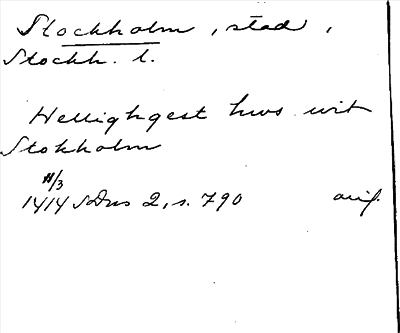 Stockholm, stad,
Stockh. l.
Hellighgest hws wit
Stokholm
11/3
1414 SDns 2, s. 790 orig.